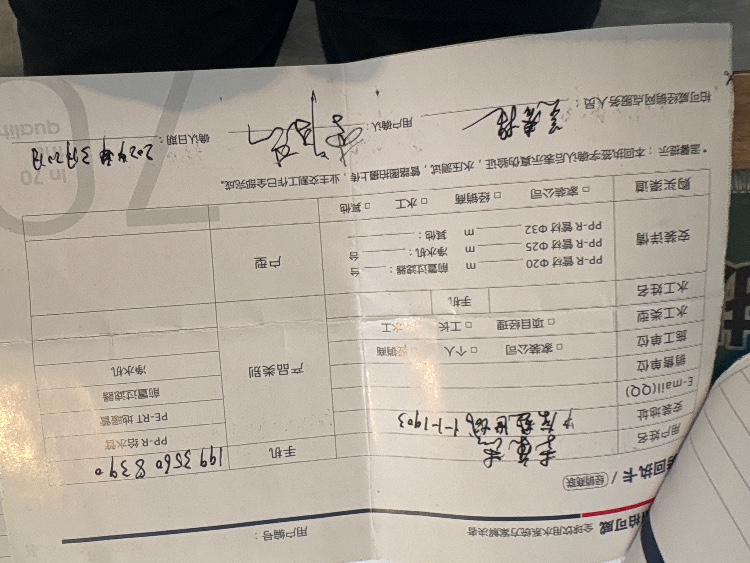 拍可威 全球饮用水系统方案解决者
用户编号：
回执卡 / 经销商联
用户姓名
手机 199 3560 8390
安装地址 1-1-1903
E-mail(QQ)
销售单位
施工单位 □ 家装公司 □ 个人 □ 经销商
水工类型 □ 项目经理 □ 工长 □ 水工
水工姓名 手机
产品类别
PP-R 给水管
PE-RT 地暖管
前置过滤器
净水机
安装详情
PP-R 管材 Φ20 m 前置过滤器： 台
PP-R 管材 Φ25 m 净水机： 台
PP-R 管材 Φ32 m 其他：
户型
购买渠道 □ 家装公司 □ 经销商 □ 水工 □ 其他
*温馨提示：本回执签字确认后表示真伪验证，水压测试，管路图拍摄上传，业主交割工作已全部完成。
柏可威经销网点服务人员：
用户确认：
确认日期： 2024年3月20日
in 70
qualit
70